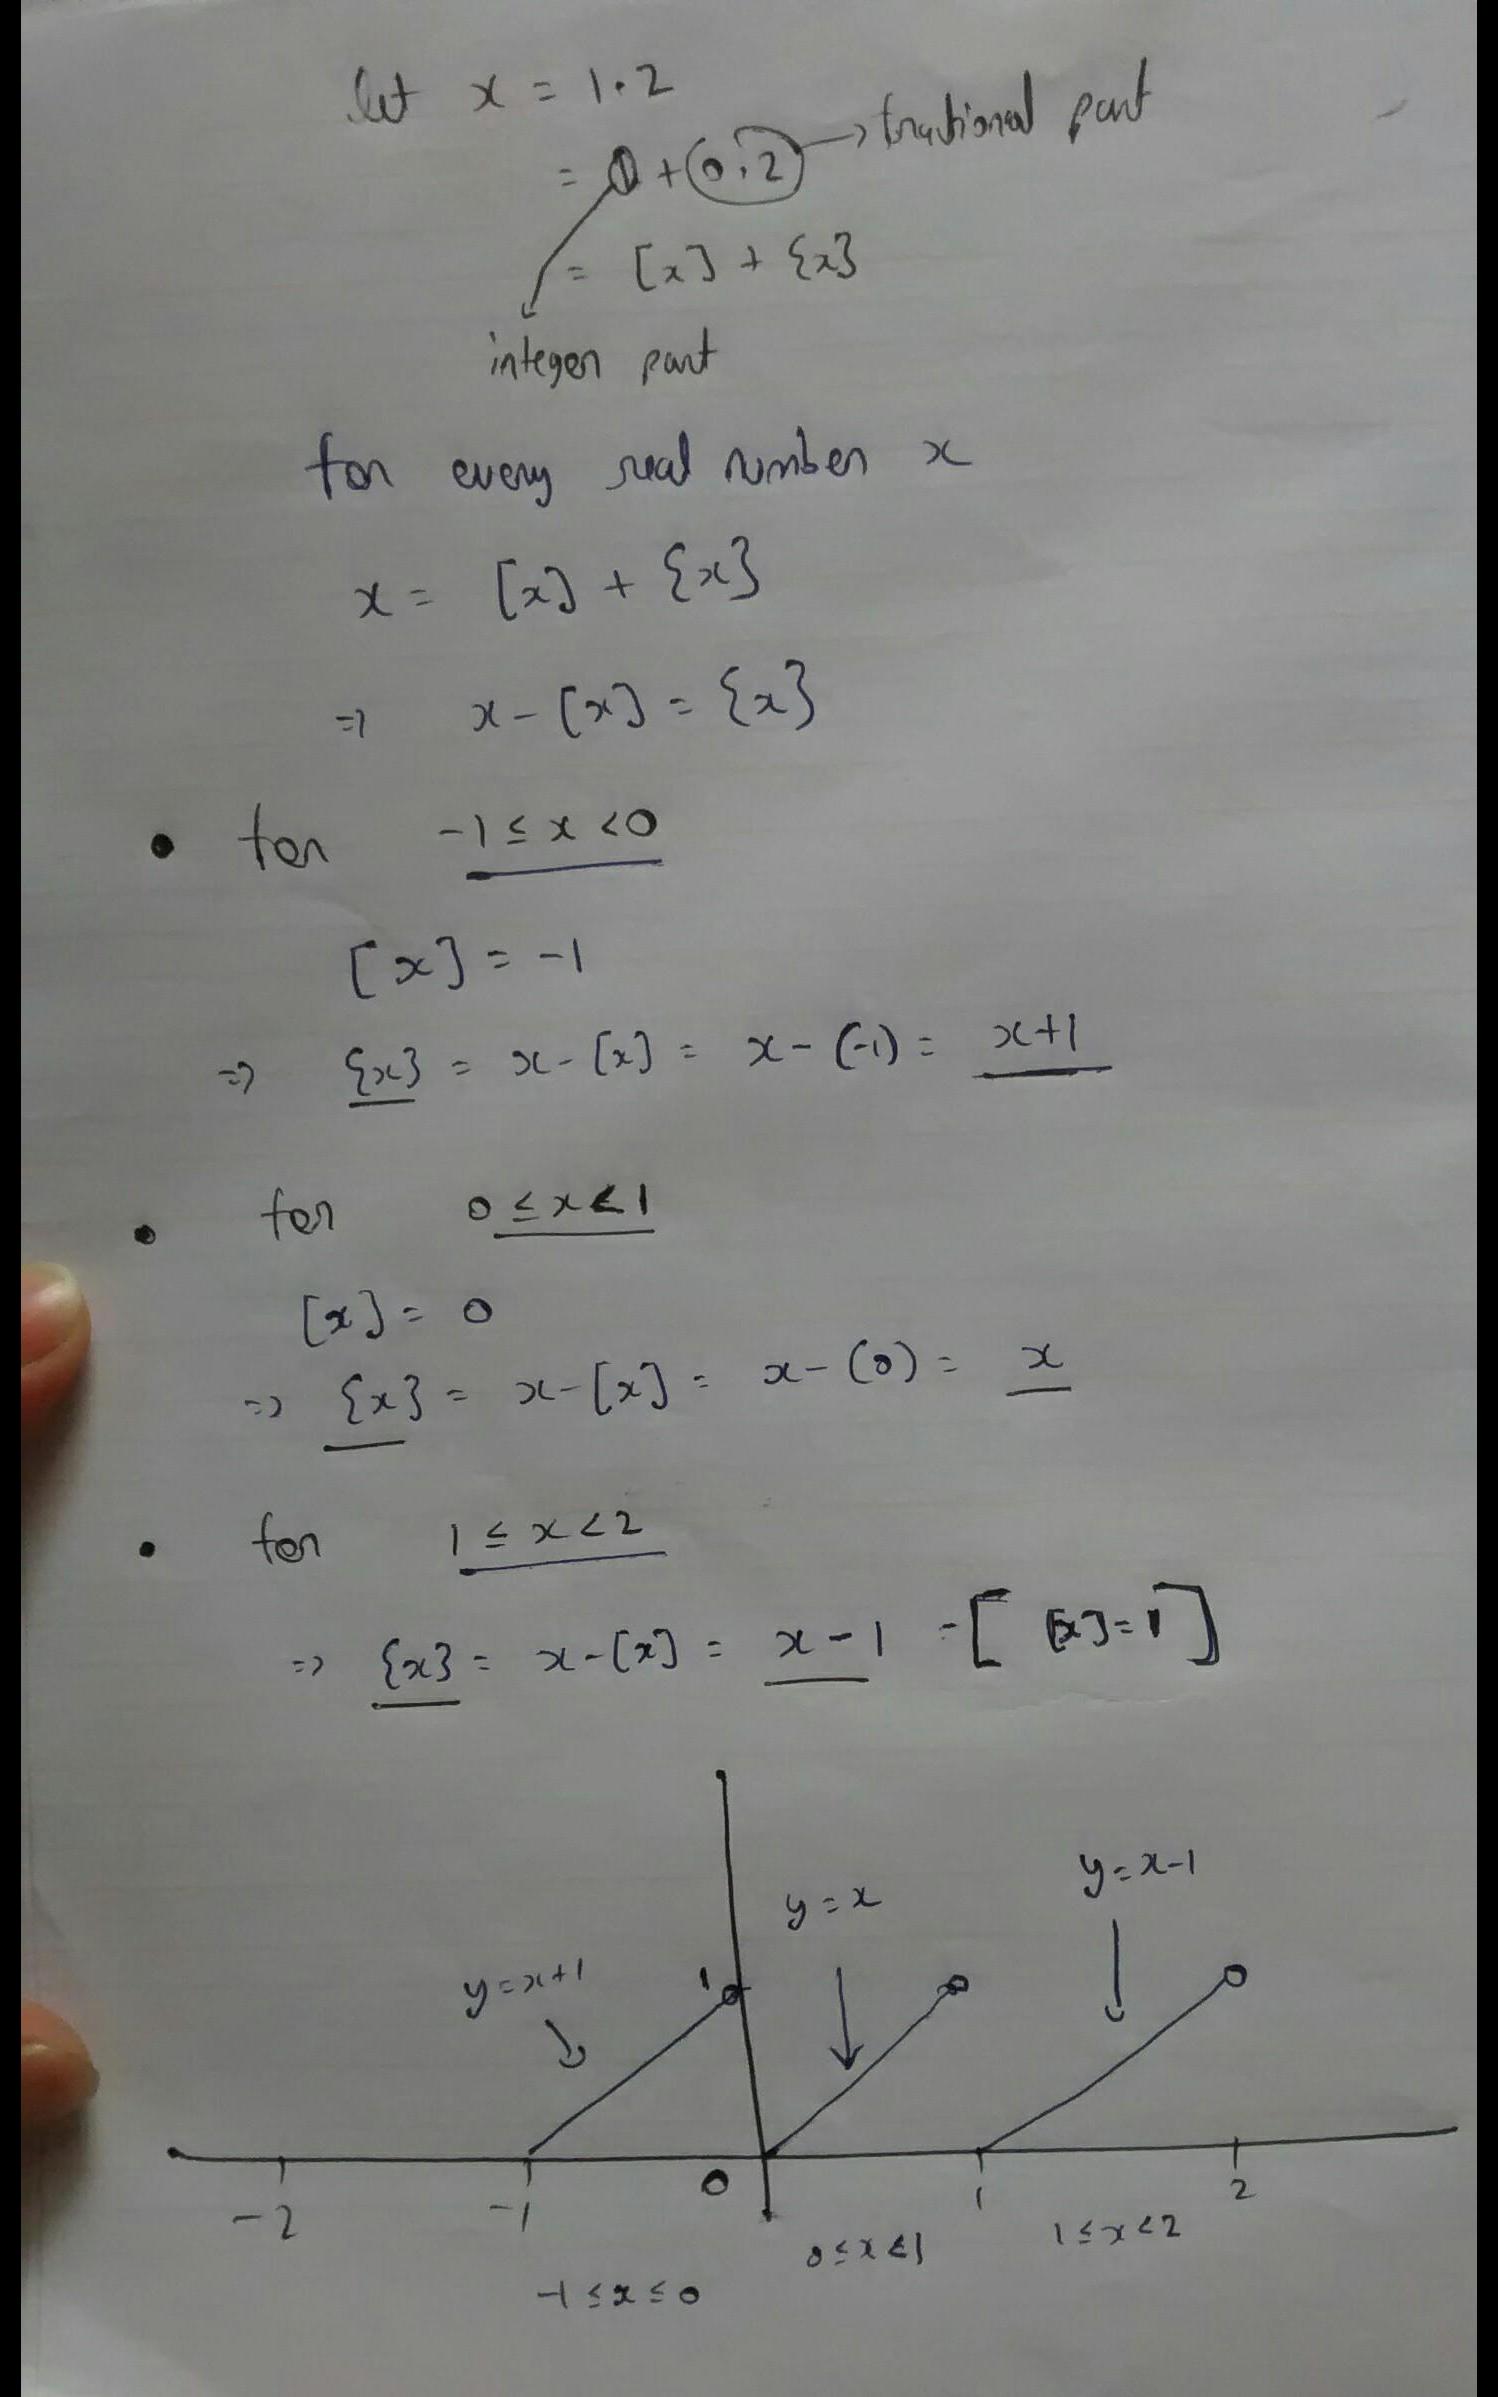 let x = 1.2
= 1 + 0.2 → fractional part
= [x] + {x}
integer part
for every real number x
x = [x] + {x}
⇒ x - [x] = {x}
• for -1 ≤ x < 0
[x] = -1
⇒ {x} = x - [x] = x - (-1) = x+1
• for 0 ≤ x < 1
[x] = 0
⇒ {x} = x - [x] = x - (0) = x
• for 1 ≤ x < 2
⇒ {x} = x - [x] = x - 1 - [ [x] = 1 ]
y = x-1
y = x
y = x+1
1
-2 -1 0 1 2
0 ≤ x < 1 1 ≤ x < 2
-1 ≤ x ≤ 0